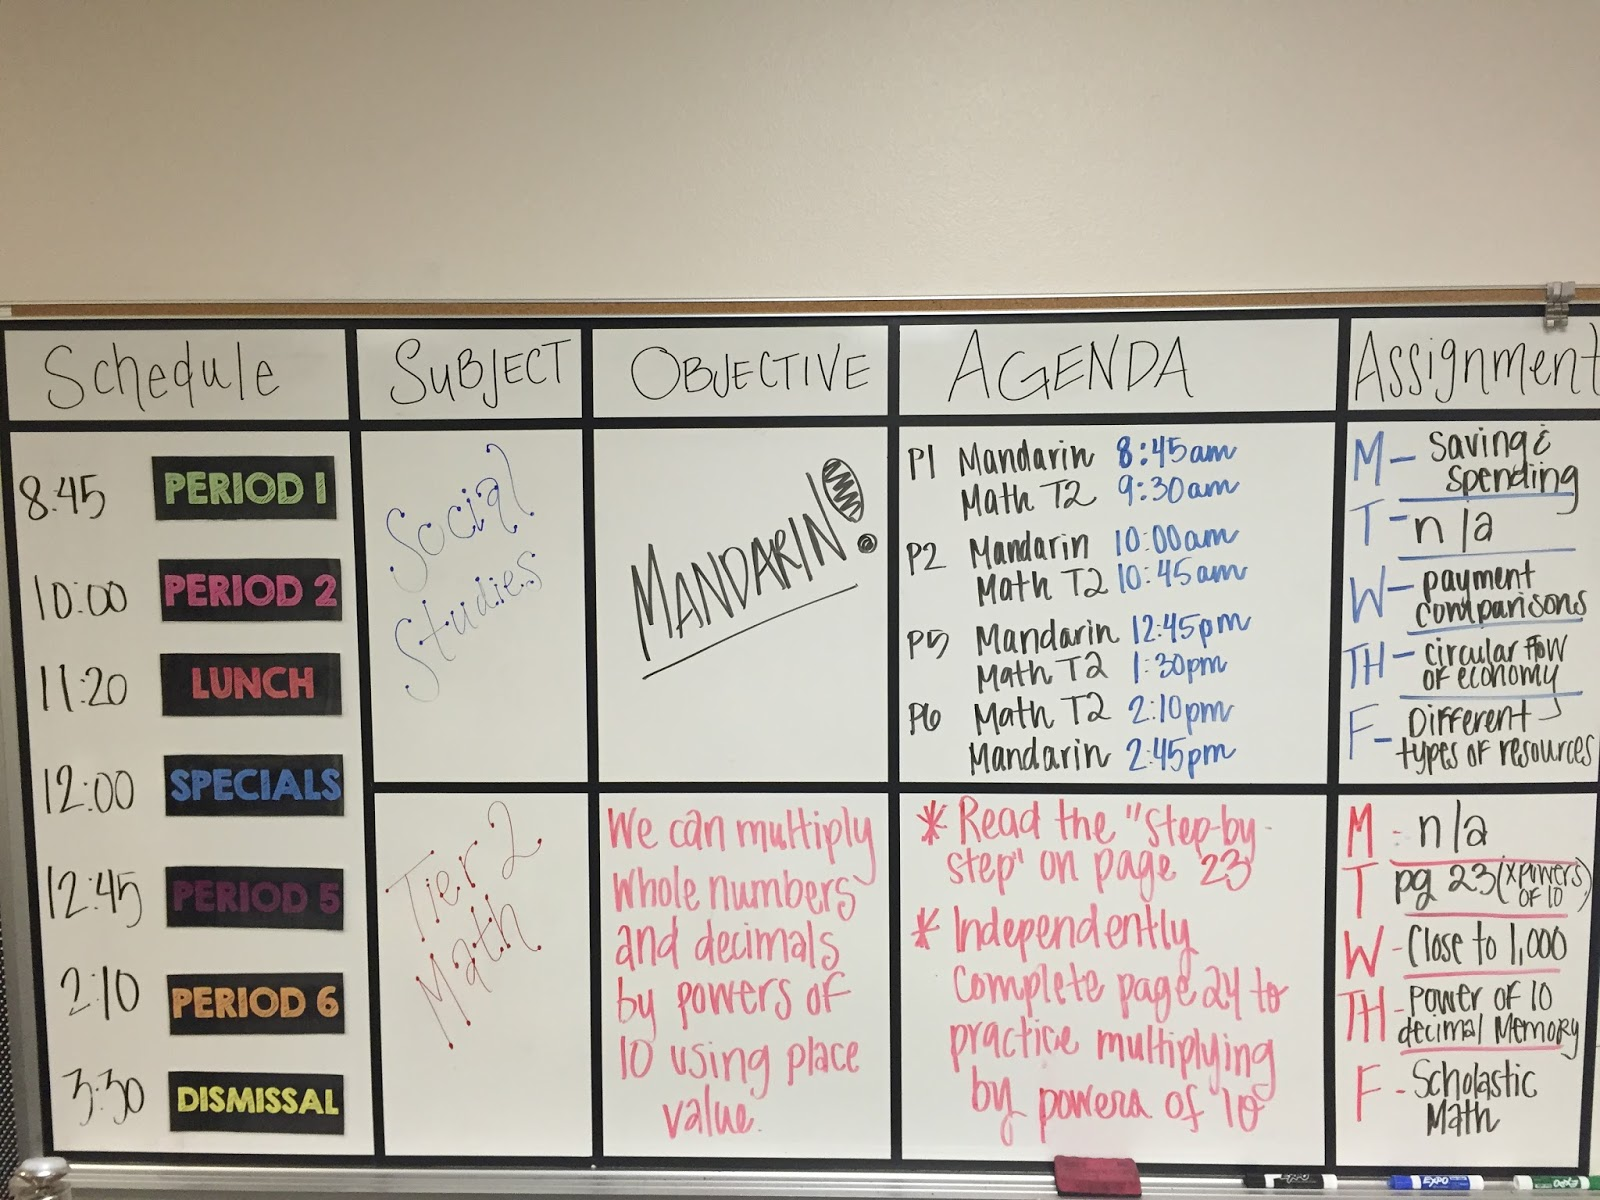 Schedule
SUBJECT
OBJECTIVE
AGENDA
Assignment
8:45 PERIOD 1
10:00 PERIOD 2
11:20 LUNCH
12:00 SPECIALS
12:45 PERIOD 5
2:10 PERIOD 6
3:30 DISMISSAL
Social
Studies
MANDARIN!
P1 Mandarin 8:45am
Math T2 9:30am
P2 Mandarin 10:00am
Math T2 10:45am
P5 Mandarin 12:45pm
Math T2 1:30pm
P6 Math T2 2:10pm
Mandarin 2:45pm
M- saving &
spending
T- n/a
W- payment
comparisons
TH- circular flow
of economy
F- Different
types of resources
Tier 2
Math
We can multiply
whole numbers
and decimals
by powers of
10 using place
value.
* Read the "step-by-
step" on page 23
* Independently
complete page 24 to
practice multiplying
by powers of 10
M - n/a
T pg 23 (x powers
of 10)
W - Close to 1,000
TH - Power of 10
decimal Memory
F - Scholastic
Math
EXPO
EXPO
EXPO